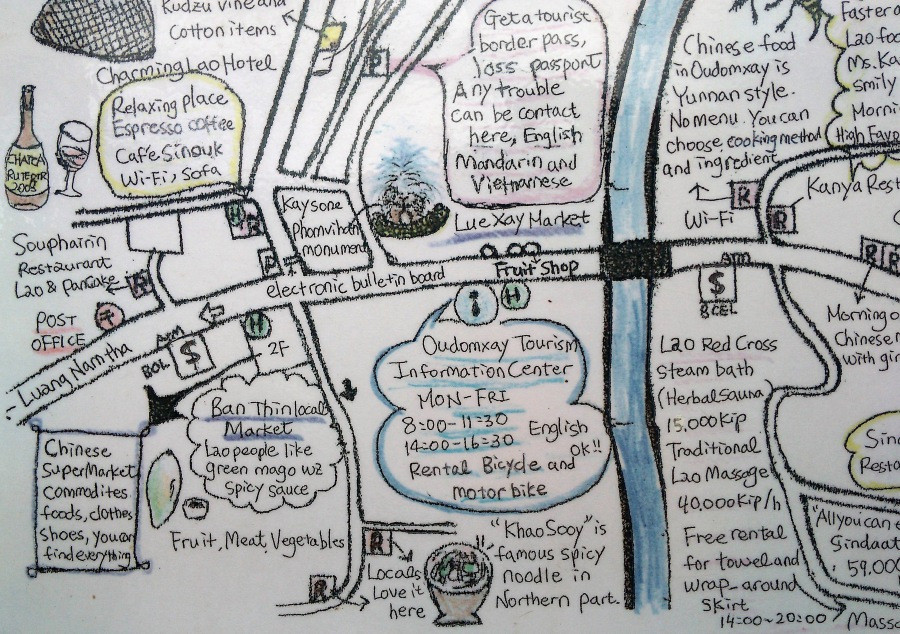 Kudzu vine and
Cotton items
Charming Lao Hotel
Relaxing place
Espresso coffee
Cafe Sinouk
Wi-Fi, sofa
CHATEA
RUTEPIR
2008
Get a tourist
border pass,
loss passport
Any trouble
can be contact
here, English
Mandarin and
Vietnamese
Chinese food
in Oudomxay is
Yunnan style.
No menu. You can
choose cooking method
and ingredient
Wi-Fi
Faster a
Lao foo
Ms. Ka
smily
Morni
High Favo
Kanya Rest
Kaysone
Phomvihan
monument
Lue Xay Market
Souphairin
Restaurant
Lao & Pancake
R
H
R
P
R
R
R
R
R
electronic bulletin board
Fruit Shop
ATM
$
BCEL
POST
OFFICE
〒
Luang Namtha
ATM
BOL
$
H
2F
i
H
Oudomxay Tourism
Information Center
MON-FRI
8:00-11:30
14:00-16:30
English
OK!!
Rental Bicycle and
motor bike
Lao Red Cross
Steam bath
(Herbal Sauna)
15.000 kip
Traditional
Lao Massage
40,000 Kip/h
Free rental
for towel and
wrap-around
skirt
14:00~20:00
Morning o
Chinese n
with gin
Sin
Resta
"All you can e
Sindaat
59,000
Massa
Chinese
SuperMarket
Commodites
foods, clothes
shoes, you can
find everything
Ban Thin local
Market
Lao people like
green mago wz
spicy sauce
Fruit, Meat, Vegetables
R
R
Locals
Love it
here
"Khao Sooy" is
famous spicy
noodle in
Northern part.